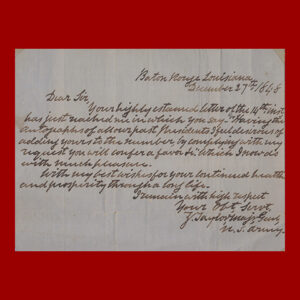 Baton Rouge Louisiana,
December 27th 1848
Dear Sir,
Your highly esteemed letter of the 14th inst.
has just reached me in which you say "Having the
autographs of all our past Presidents I feel desirous of
adding yours to the number by complying with my
request you will confer a favor": Which I now do
with much pleasure.
With my best wishes for your continued health
and prosperity through a long life.
I remain with high respect
Your Obt Servt,
Z. Taylor Majr Genl,
U. S. Army.